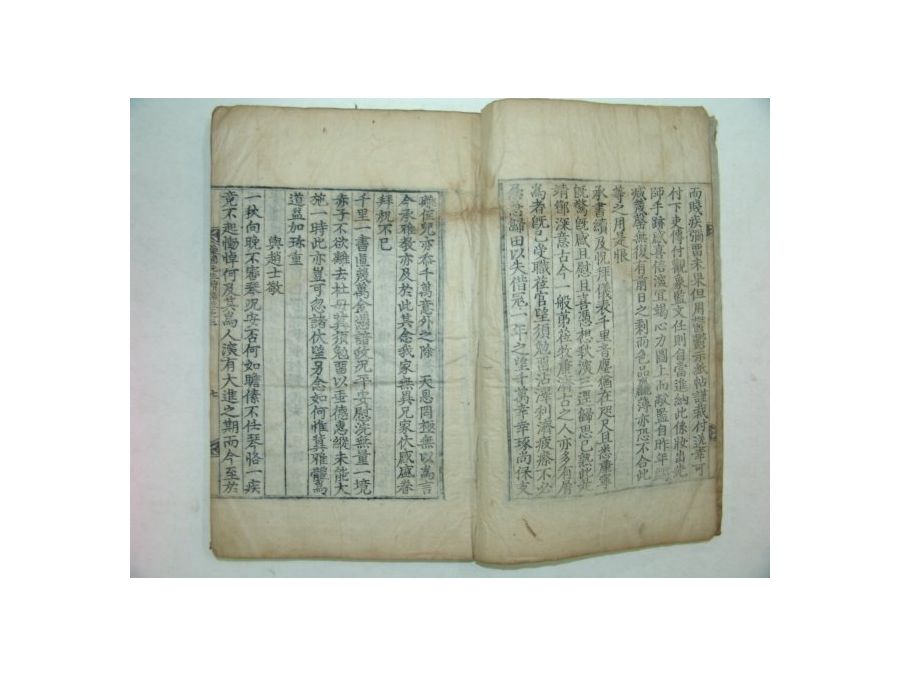 而賤疾彌留未果但用鬱鬱示紙帖謹裁付送幸可
付下史傳付觀象監文任則自當進納此係妝出先
師手跡感喜倍深宜竭心力圖上而敝監自昨年
減無復有前日之剩而色品薄亦恐不合此
等之用是恨
承書續及祝拜儀表千里音塵猶在咫尺且悉重寄
既驚既感且慰且喜憑想歸思已
靖節深意古今一般第莅牧廉濟古之人亦多有屑
爲者既已受職莅官望須勉留沾澤利濟疲瘵不必
急歸田以失借寇一年之望千萬幸琢尚保支
離在兒亦吞千萬意外之除 天恩罔極無以爲言
今承雅教亦及於此其念我家無異兄家伏感庭眷
拜規不已
千里一書眞幾萬金憑諳政況平安慰沈無量一境
赤子不欲離去杜母其須勉留以垂德惠縱未能大
施一時此亦豈可忽諸伏望另念如何惟冀雅體萬
道益加珍重
與趙士敬
一秋向晚不審琴況安否何如瞻傃不任琴胳一疾
竟不起慟悼何及其爲人深有大進之期而今至於
七